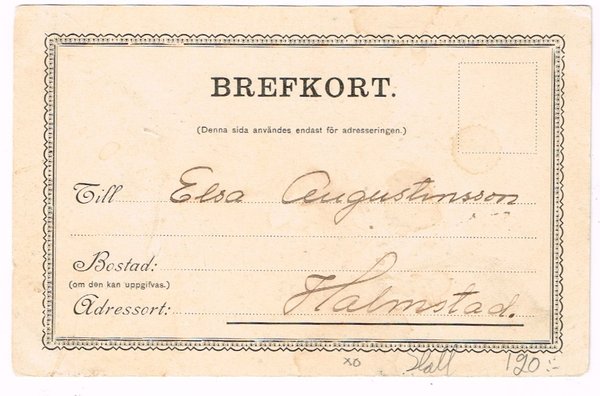 BREFKORT.
(Denna sida användes endast för adresseringen.)
Till Elsa Augustinsson
Bostad:
(om den kan uppgifvas.)
Adressort: Halmstad.
XO Hall 190:-